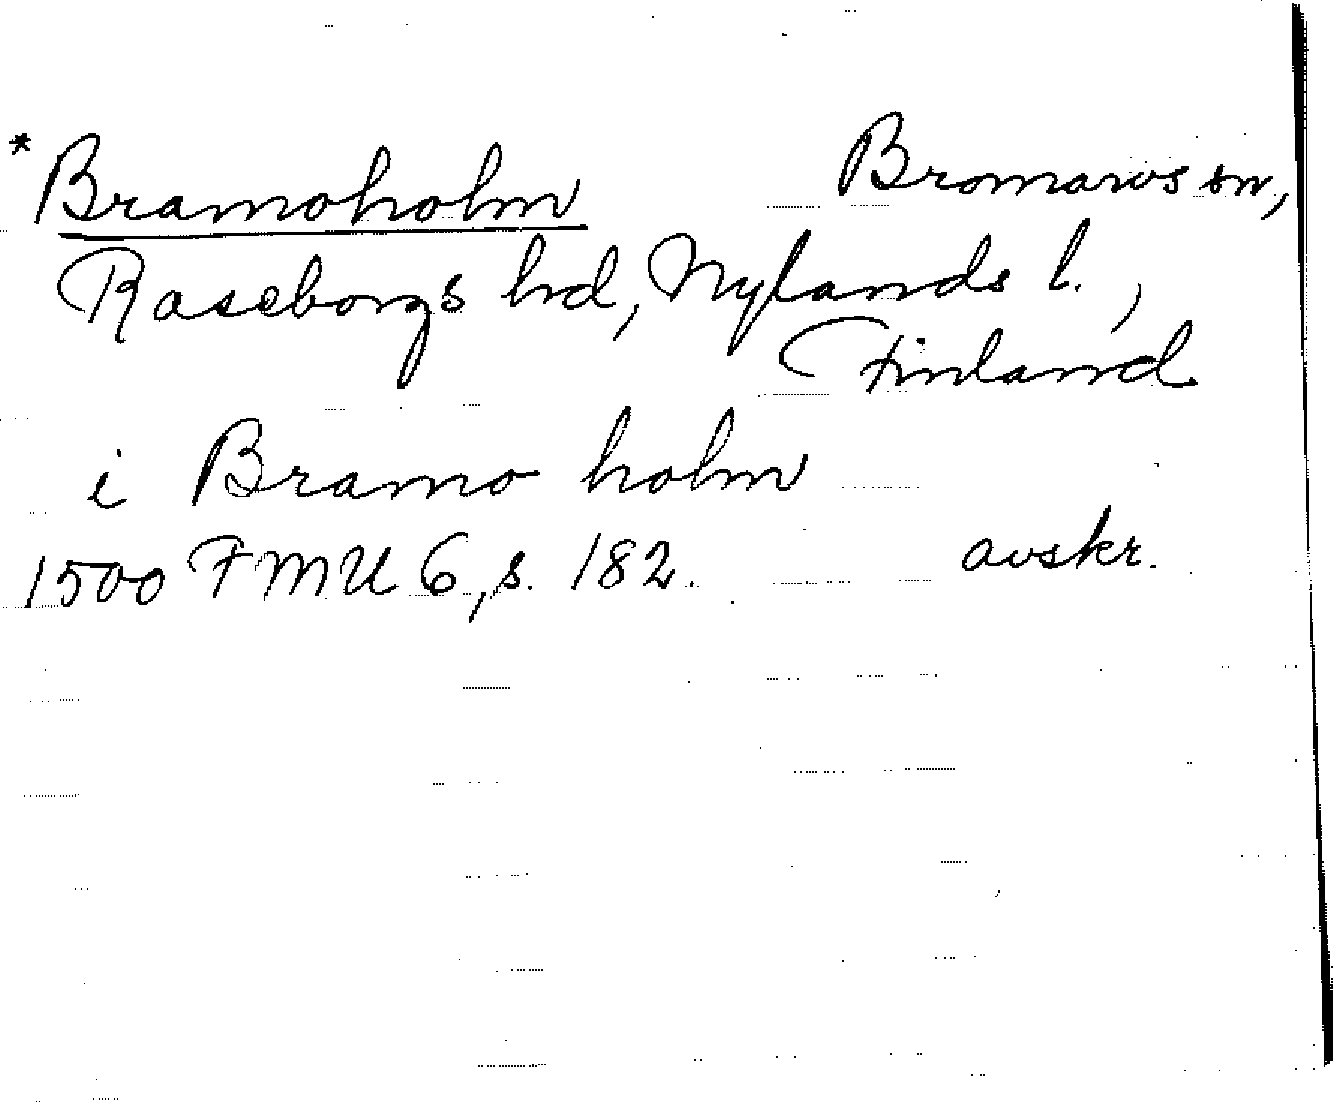 *Bramoholm Bromarvs sn,
Raseborgs hd, Nylands l.,
Finland
i Bramo holm
1500 FMU 6, s. 182. avskr.